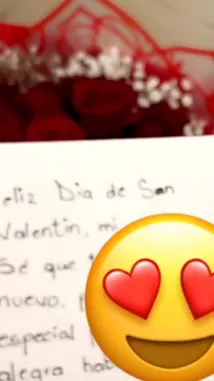 eliz Dia de San
Valentin, mi
Sé que
nuevo,
especial
alegra hab